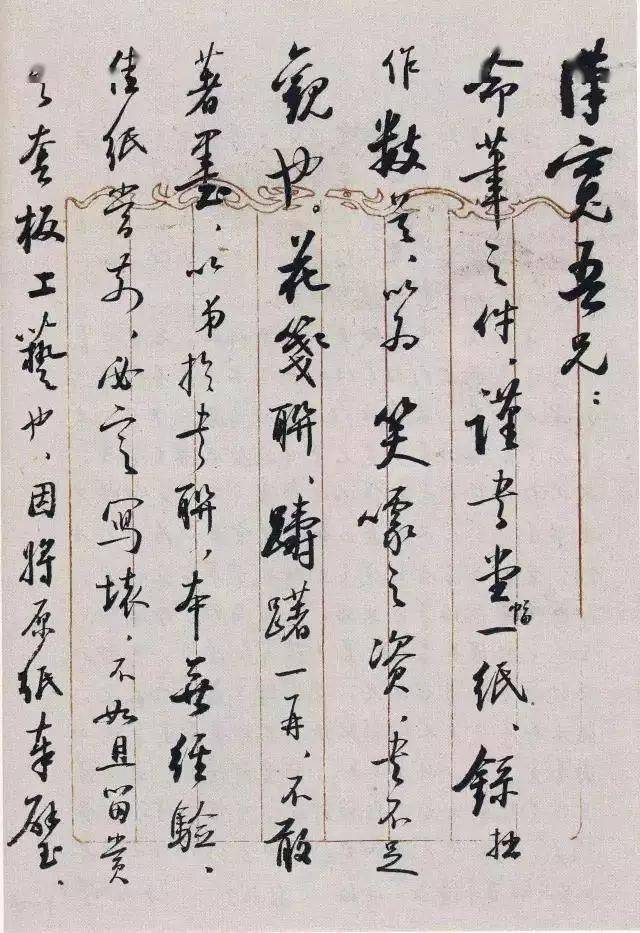 漢寬吾兄：
命筆之件、謹書堂幅一紙、錄拙
作數首、以為笑噱之資、書不足
觀也。花箋聯、躊躇一再、不敢
著墨、以弟於書聯，本無經驗、
佳紙當前、必定寫壞、不如且留賞
之套板工藝也、因將原紙奉璧、